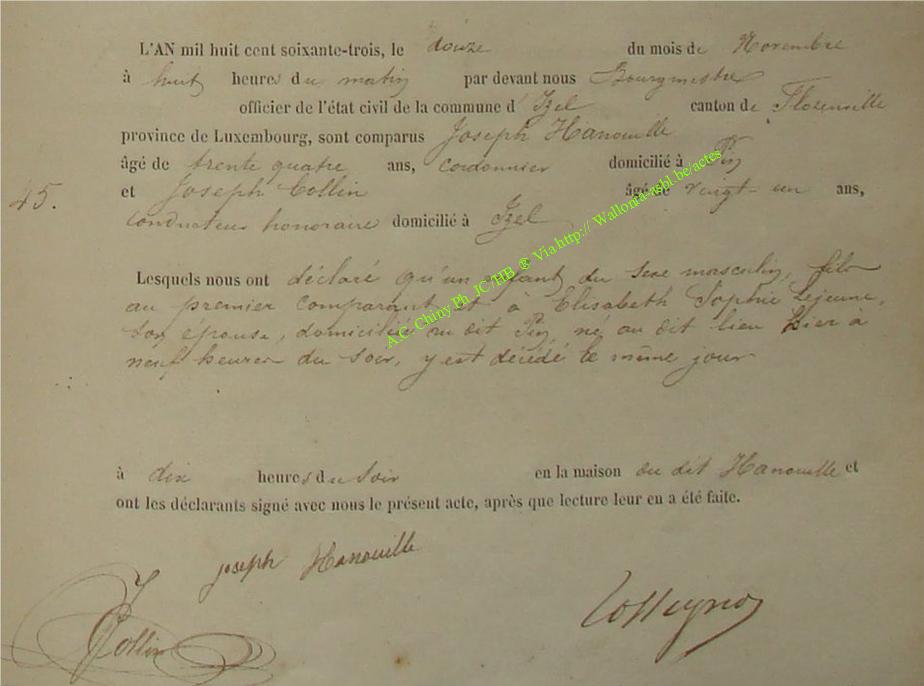 L'AN mil huit cent soixante-trois, le douze du mois de Novembre
à huit heures du matin par devant nous Bourgmestre
officier de l'état civil de la commune d'Izel canton de Florenville
province de Luxembourg, sont comparus Joseph Hanouille
âgé de trente quatre ans, cordonnier domicilié à Pin
45. et Joseph Collin âgé de vingt-un ans,
conducteur honoraire domicilié à Izel
Lesquels nous ont déclaré qu'un enfant du sexe masculin, fils
au premier comparant et à Elisabeth Sophie Lejeune,
son épouse, domiciliée au dit Pin, né au dit lieu hier à
neuf heures du soir, y est décédé le même jour
à dix heures du soir en la maison du dit Hanouille et
ont les déclarants signé avec nous le présent acte, après que lecture leur en a été faite.
joseph Hanouille
J Collin
A.C. Chiny Ph. JC/HB ® Via http:// Wallonia-asbl.be/actes